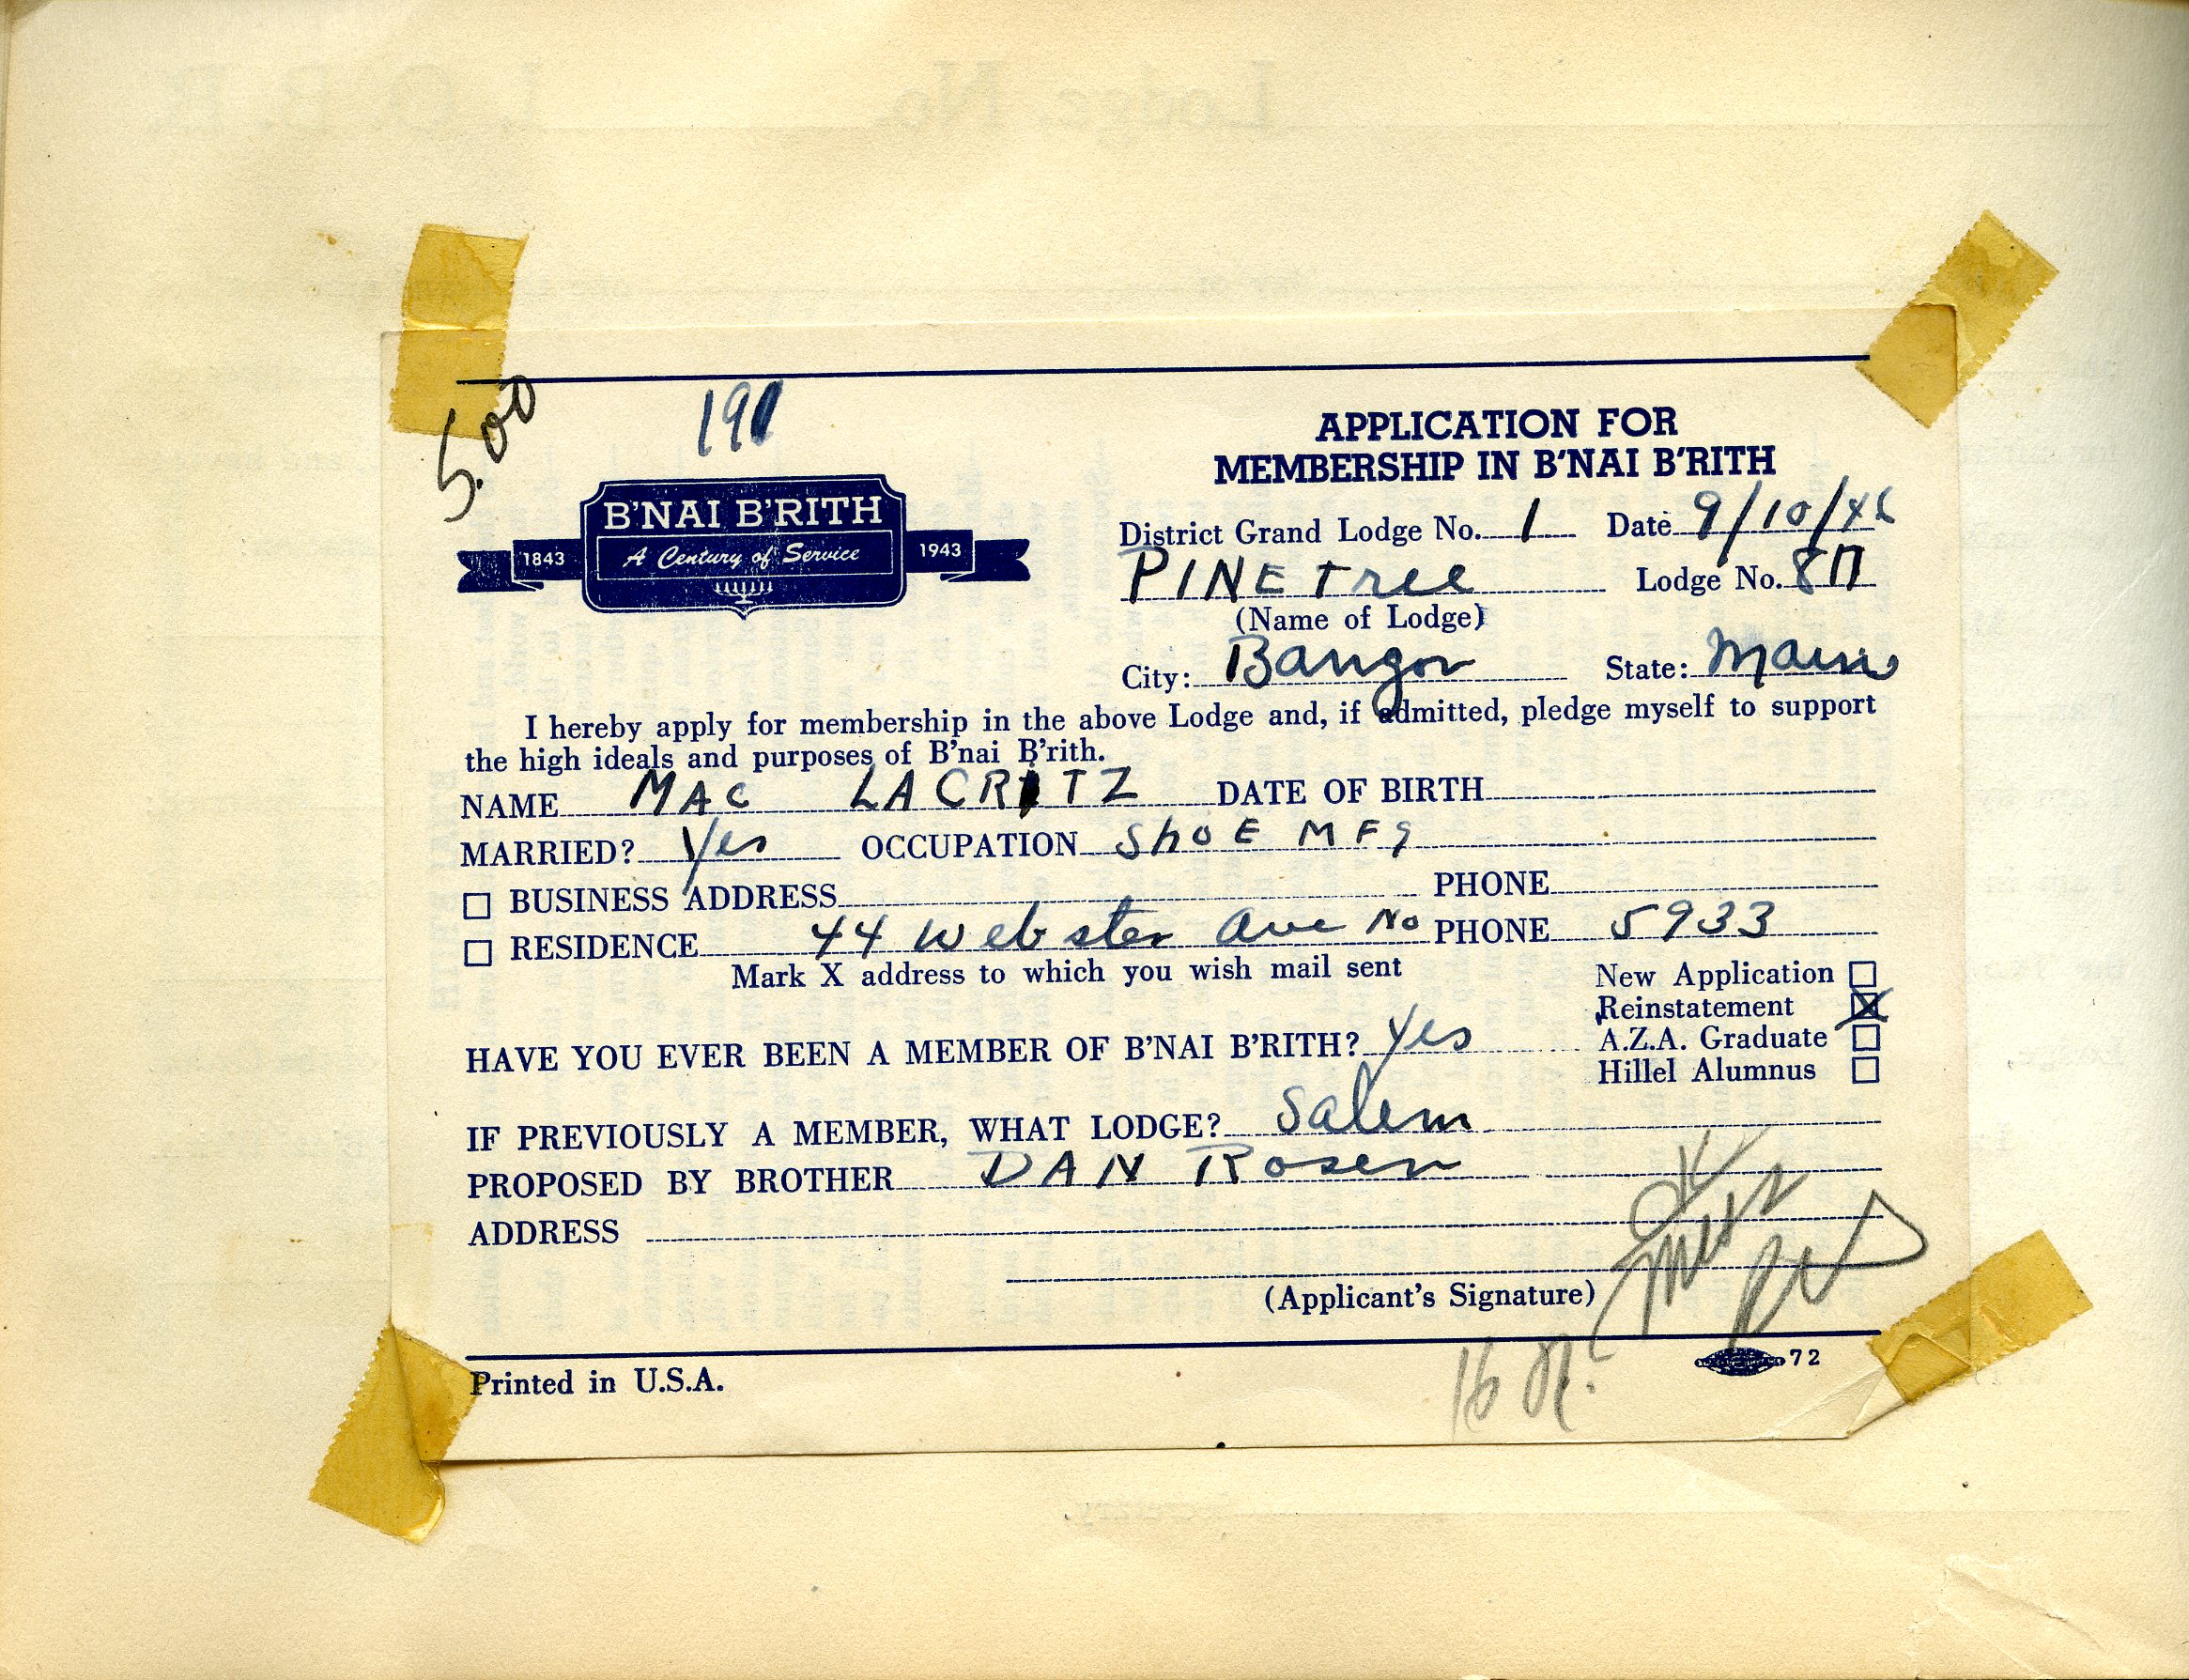 5.00
191
APPLICATION FOR
MEMBERSHIP IN B'NAI B'RITH
B'NAI B'RITH
1843 A Century of Service 1943
District Grand Lodge No. 1 Date 9/10/46
PINE Tree Lodge No. 817
(Name of Lodge)
City: Bangor State: Maine
I hereby apply for membership in the above Lodge and, if admitted, pledge myself to support
the high ideals and purposes of B'nai B'rith.
NAME MAC LACRITZ DATE OF BIRTH
MARRIED? Yes OCCUPATION ShOE MFG
☐ BUSINESS ADDRESS PHONE
☐ RESIDENCE 44 Webster Ave No PHONE 5933
Mark X address to which you wish mail sent
New Application ☐
Reinstatement ☒
A.Z.A. Graduate ☐
Hillel Alumnus ☐
HAVE YOU EVER BEEN A MEMBER OF B'NAI B'RITH? Yes
IF PREVIOUSLY A MEMBER, WHAT LODGE? Salem
PROPOSED BY BROTHER DAN Rosen
ADDRESS
OK
(Applicant's Signature)
Printed in U.S.A.
72